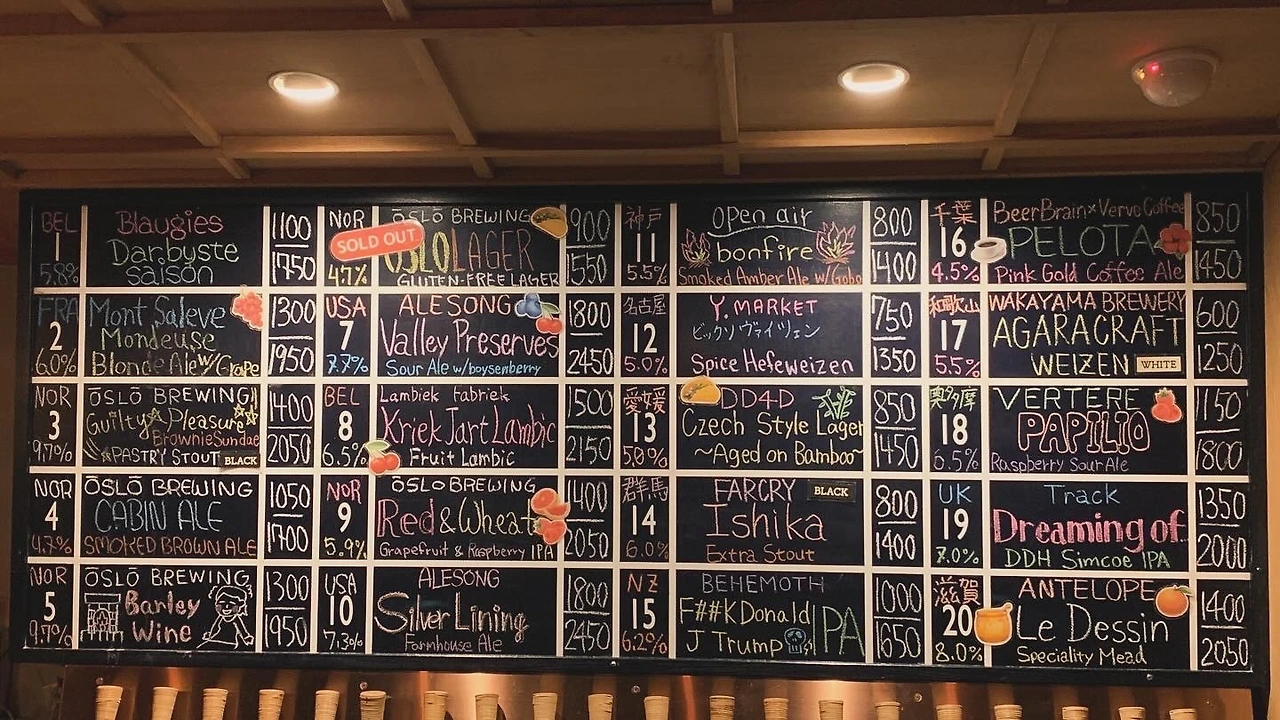 BEL
1
5.8%
Blaugies
Danbyste
saison
1100
1750
FRA
2
6.0%
Mont Saleve
Mondeuse
Blonde Ale w/Grape
1300
1950
NOR
3
9.7%
ŌSLŌ BREWING
Guilty Pleasure
BrownieSundae
PASTRY STOUT
BLACK
1400
2050
NOR
4
4.7%
ŌSLŌ BREWING
CABIN ALE
SMOKED BROWN ALE
1050
1700
NOR
5
9.9%
ŌSLŌ BREWING
Barley
Wine
1300
1950
NOR
4.7%
SOLD OUT
ŌSLŌ BREWING
OSLO LAGER
GLUTEN-FREE LAGER
900
1550
USA
7
7.7%
ALESONG
Valley Preserves
Sour Ale w/boysenberry
1800
2450
BEL
8
6.5%
Lambiek Fabriek
Kriek Jart Lambic
Fruit Lambic
1500
2150
NOR
9
5.9%
ŌSLŌ BREWING
Red & Wheat
Grapefruit & Raspberry IPA
1400
2050
USA
10
7.3%
ALESONG
Silver Lining
Farmhouse Ale
1800
2450
神戸
11
5.5%
Open air
bonfire
Smoked Amber Ale w/Gobo
800
1400
名古屋
12
5.0%
Y. MARKET
ビックリヴァイツェン
Spice Hefeweizen
750
1350
愛媛
13
5.0%
DD4D
Czech Style Lager
~Aged on Bamboo~
850
1450
群馬
14
6.0%
FARCRY
BLACK
Ishika
Extra Stout
800
1400
NZ
15
6.2%
BEHEMOTH
F##KDonald
J Trump
IPA
1000
1650
千葉
16
4.5%
BeerBrain×Verve Coffee
PELOTA
Pink Gold Coffee Ale
850
1450
和歌山
17
5.5%
WAKAYAMA BREWERY
AGARACRAFT
WEIZEN
WHITE
600
1250
奥多摩
18
6.5%
VERTERE
PAPILIO
Raspberry Sour Ale
1150
1800
UK
19
7.0%
Track
Dreaming of..
DDH Simcoe IPA
1350
2000
滋賀
20
8.0%
ANTELOPE
Le Dessin
Speciality Mead
1400
2050